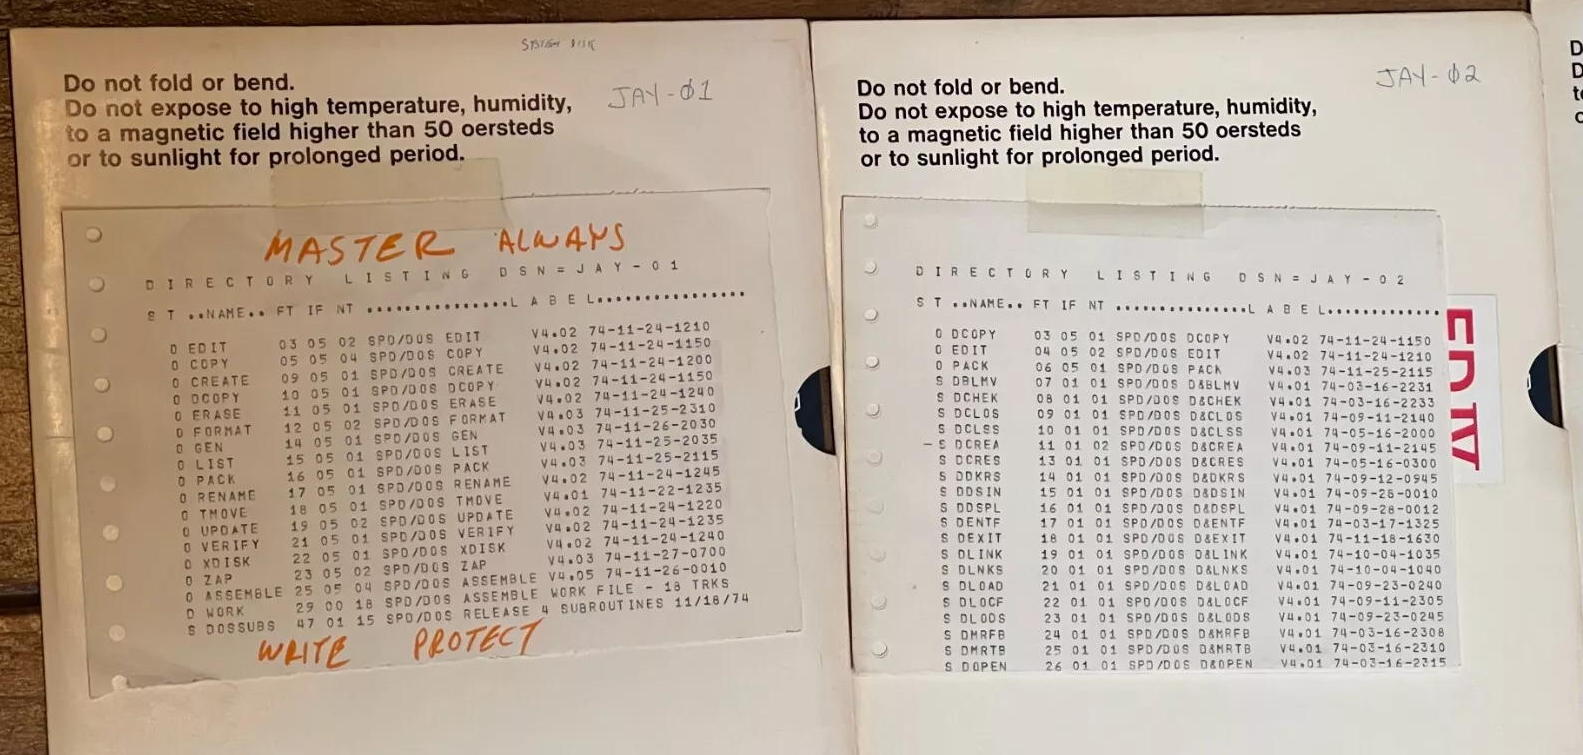 SYSTEM DISK
Do not fold or bend.
Do not expose to high temperature, humidity,
to a magnetic field higher than 50 oersteds
or to sunlight for prolonged period.
JAY-Ø1
MASTER ALWAYS
DIRECTORY LISTING DSN=JAY-01
S T ..NAME.. FT IF NT ...............L A B E L.................
O EDIT 03 05 02 SPD/DOS EDIT V4.02 74-11-24-1210
O COPY 05 05 04 SPD/DOS COPY V4.02 74-11-24-1150
O CREATE 09 05 01 SPD/DOS CREATE V4.02 74-11-24-1200
O DCOPY 10 05 01 SPD/DOS DCOPY V4.02 74-11-24-1150
O ERASE 11 05 01 SPD/DOS ERASE V4.02 74-11-24-1240
O FORMAT 12 05 02 SPD/DOS FORMAT V4.03 74-11-25-2310
O GEN 14 05 01 SPD/DOS GEN V4.03 74-11-26-2030
O LIST 15 05 01 SPD/DOS LIST V4.03 74-11-25-2035
O PACK 16 05 01 SPD/DOS PACK V4.03 74-11-25-2115
O RENAME 17 05 01 SPD/DOS RENAME V4.02 74-11-24-1245
O TMOVE 18 05 01 SPD/DOS TMOVE V4.01 74-11-22-1235
O UPDATE 19 05 02 SPD/DOS UPDATE V4.02 74-11-24-1220
O VERIFY 21 05 01 SPD/DOS VERIFY V4.02 74-11-24-1235
O XDISK 22 05 01 SPD/DOS XDISK V4.02 74-11-24-1240
O ZAP 23 05 02 SPD/DOS ZAP V4.03 74-11-27-0700
O ASSEMBLE 25 05 04 SPD/DOS ASSEMBLE V4.05 74-11-26-0010
D WORK 29 00 18 SPD/DOS ASSEMBLE WORK FILE - 18 TRKS
S DOSSUBS 47 01 15 SPD/DOS RELEASE 4 SUBROUTINES 11/18/74
WRITE PROTECT
Do not fold or bend.
Do not expose to high temperature, humidity,
to a magnetic field higher than 50 oersteds
or to sunlight for prolonged period.
JAY-Ø2
DIRECTORY LISTING DSN=JAY-02
S T ..NAME.. FT IF NT ...............L A B E L...............
O DCOPY 03 05 01 SPD/DOS DCOPY V4.02 74-11-24-1150
O EDIT 04 05 02 SPD/DOS EDIT V4.02 74-11-24-1210
O PACK 06 05 01 SPD/DOS PACK V4.03 74-11-25-2115
S DBLMV 07 01 01 SPD/DOS D&BLMV V4.01 74-03-16-2231
S DCHEK 08 01 01 SPD/DOS D&CHEK V4.01 74-03-16-2233
S DCLOS 09 01 01 SPD/DOS D&CLOS V4.01 74-09-11-2140
S DCLSS 10 01 01 SPD/DOS D&CLSS V4.01 74-05-16-2000
- S DCREA 11 01 02 SPD/DOS D&CREA V4.01 74-09-11-2145
S DCRES 13 01 01 SPD/DOS D&CRES V4.01 74-05-16-0300
S DDKRS 14 01 01 SPD/DOS D&DKRS V4.01 74-09-12-0945
S DDSIN 15 01 01 SPD/DOS D&DSIN V4.01 74-09-28-0010
S DDSPL 16 01 01 SPD/DOS D&DSPL V4.01 74-09-28-0012
S DENTF 17 01 01 SPD/DOS D&ENTF V4.01 74-03-17-1325
S DEXIT 18 01 01 SPD/DOS D&EXIT V4.01 74-11-18-1630
S DLINK 19 01 01 SPD/DOS D&LINK V4.01 74-10-04-1035
S DLNKS 20 01 01 SPD/DOS D&LNKS V4.01 74-10-04-1040
S DLOAD 21 01 01 SPD/DOS D&LOAD V4.01 74-09-23-0240
S DLOCF 22 01 01 SPD/DOS D&LOCF V4.01 74-09-11-2305
S DLODS 23 01 01 SPD/DOS D&LODS V4.01 74-09-23-0245
S DMRFB 24 01 01 SPD/DOS D&MRFB V4.01 74-03-16-2308
S DMRTB 25 01 01 SPD/DOS D&MRTB V4.01 74-03-16-2310
S DOPEN 26 01 01 SPD/DOS D&OPEN V4.01 74-03-16-2315